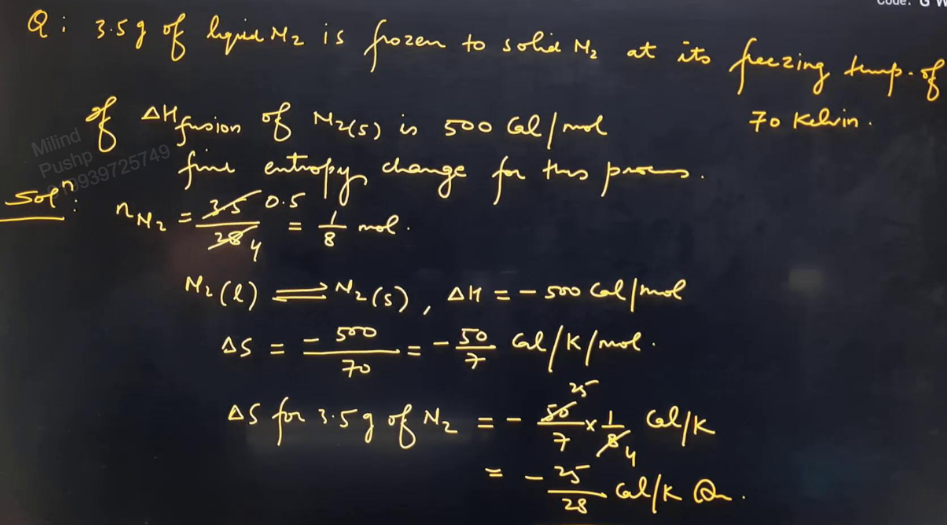 Code: G W
Q: 3.5 g of liquid N2 is frozen to solid N2 at its freezing temp. of
70 Kelvin.
If ΔHfusion of N2(s) is 500 Cal/mol
find entropy change for this process.
Milind
Pushp
9939725749
Solⁿ: nN2 = 3.5 0.5 / 28 4 = 1/8 mol.
N2(l) ⇌ N2(s), ΔH = - 500 Cal/mol
ΔS = - 500/70 = - 50/7 Cal/K/mol.
ΔS for 3.5 g of N2 = - 50 25 / 7 × 1 / 8 4 Cal/K
= - 25/28 Cal/K